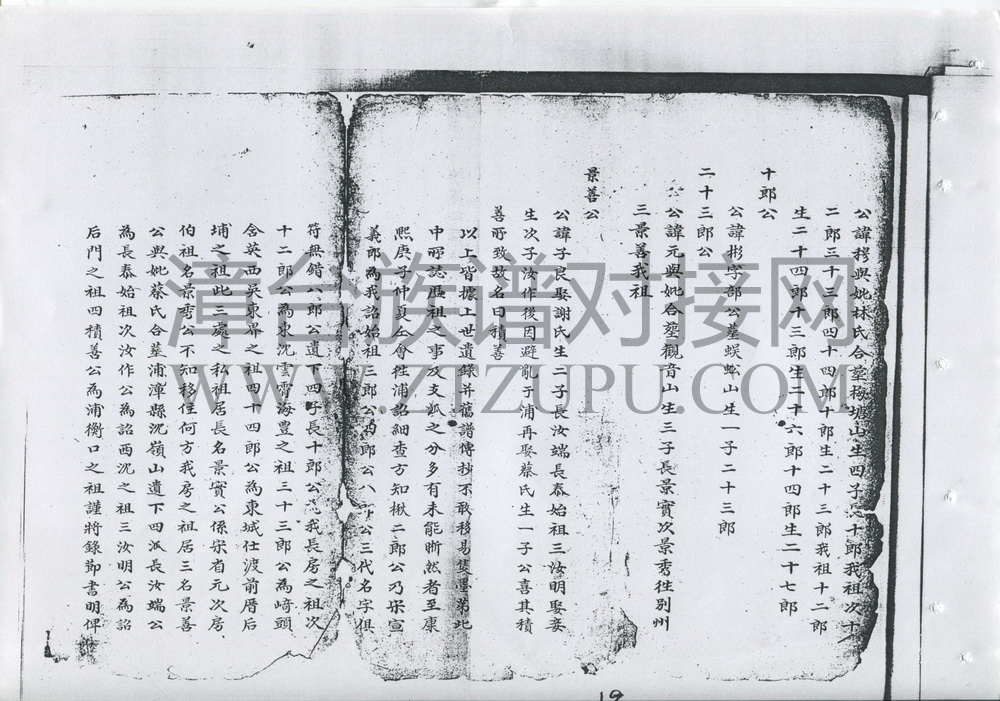 公諱栲與妣林氏合塋梅塘山生四子長十郎我祖次十
二郎三十三郎四十四郎十郎生二十三郎我祖十二郎
生二十四郎十三郎生二十六郎十四郎生二十七郎
十郎公
公諱彬字部公塋蜈蚣山生一子二十三郎
二十三郎公
公諱元與妣合塋觀音山生三子長景實次景秀徃別州
三景善我祖
景善公
公諱子良娶謝氏生二子長汝端長泰始祖三汝明娶妾
生次子汝作後因避亂于浦再娶蔡氏生一子公喜其積
善所致故名曰積善
以上皆據上世遺錄并舊譜傳抄不敢移易隻墨第此
中所誌歷祖之事及支派之分多有未能晰然者至康
熙庚子仲夏仝會徃浦詔細查方知楸二郎公乃宋宣
義郎為我詔始祖三郎公為郎公八郎公三代名字俱
符無錯八郎公遺下四子長十郎公為我長房之祖次
十二郎公為東沈雲霄海豊之祖三十三郎公為﨑頭
含英西吳東寮之祖四十四郎公為東城仕渡前厝后
埔之祖此三處之私祖居長名景實公係宋省元次房
伯祖名景秀公不知移住何方我房之祖居三名景善
公與妣蔡氏合墓浦漳縣沉嶺山遺下四派長汝端公
為長泰始祖次汝作公為詔西沈之祖三汝明公為詔
后門之祖四積善公為浦衡口之祖謹將錄節書明俾
19
漳台族谱对接网
WWW.ZTZUPU.COM